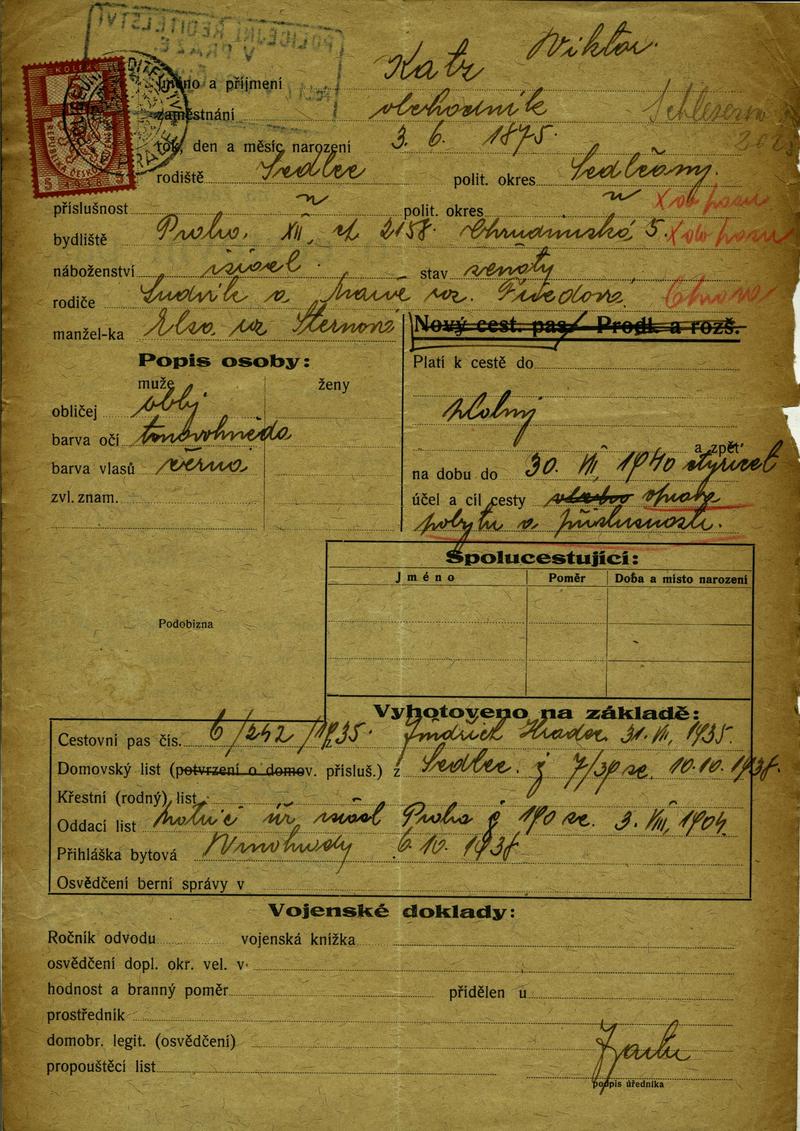 POLICEJNÍ ŘEDITELSTVÍ
V PRAZE
Katz Viktor.
Jméno a příjmení
zaměstnání obchodník
rok, den a měsíc narození 3. 6. 1875.
rodiště Sedlec polit. okres Sedlčany.
příslušnost " polit. okres "
bydliště Praha XII, čp 2158. Chrudimská 5.
náboženství israel. stav ženatý
rodiče Ludvík a Marie roz.
manžel-ka Elsa roz Sternová
Nový cest. pas / Prodl. a rozš.
Popis osoby:
Platí k cestě do
muže ženy
obličej obl.
barva očí tmavohnědá
barva vlasů černá
zvl. znam.
a zpět
na dobu do 30. VII, 1940 čtyřicet
účel a cíl cesty úprava
pobytu a příslušnosti.
Spolucestující:
Jméno Poměr Doba a místo narození
Podobizna
Vyhotoveno na základě:
Cestovní pas čís. 6/242/1935. Jindřich Hradec 31. VII, 1935.
Domovský list (potvrzení o domov. přísluš.) z Sedlec. č 7/38 ze. 10.10.1938.
Křestní (rodný) list
Oddací list matrič úř israel Praha č 190 ze. 3. VIII, 1904.
Přihláška bytová Vinohrady 6.10.1938
Osvědčení berní správy v
Vojenské doklady:
Ročník odvodu vojenská knížka
osvědčení dopl. okr. vel. v
hodnost a branný poměr přidělen u
prostředník
domobr. legit. (osvědčení)
propouštěcí list
podpis úředníka